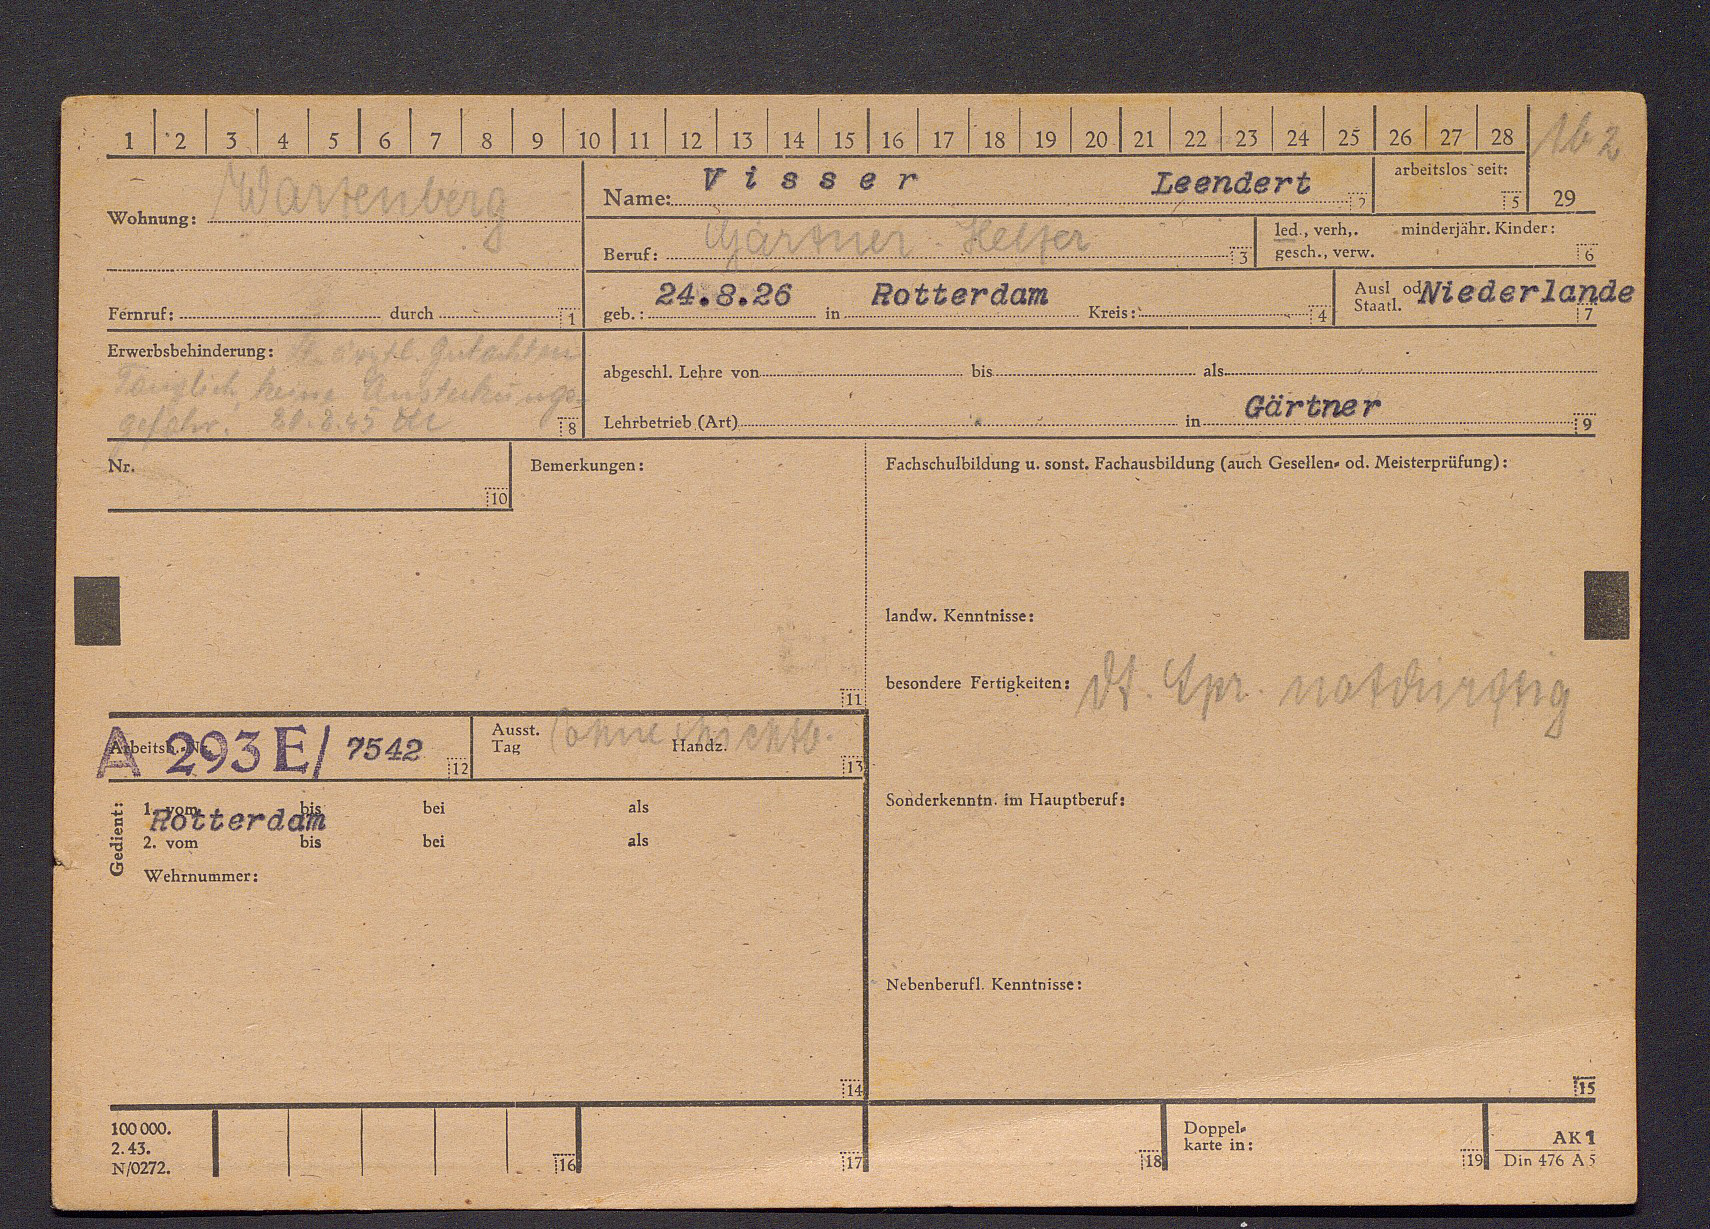 1 2 3 4 5 6 7 8 9 10 11 12 13 14 15 16 17 18 19 20 21 22 23 24 25 26 27 28 29
1b 2
Wohnung: Wartenberg
Fernruf: durch 1
Name: Visser Leendert 2
arbeitslos seit: 5
Beruf: Gärtner-Helfer 3
led., verh,. minderjähr. Kinder:
gesch., verw. 6
geb.: 24.8.26 in Rotterdam Kreis: 4
Ausl od Niederlande
Staatl. 7
Erwerbsbehinderung: lt. ärztl. Gutachten
Tauglich, keine Ansteckungs-
gefahr. 8
abgeschl. Lehre von bis als
Lehrbetrieb (Art) in Gärtner 9
Nr. 10
Bemerkungen: 11
Fachschulbildung u. sonst. Fachausbildung (auch Gesellen- od. Meisterprüfung):
landw. Kenntnisse:
besondere Fertigkeiten: dt. Spr. notdürftig
Sonderkenntn. im Hauptberuf:
Nebenberufl. Kenntnisse: 15
Arbeitsb.-Nr. A 293 E/ 7542 12
Ausst.
Tag ohne Handz. 13
Gedient:
1. vom bis bei als
Rotterdam
2. vom bis bei als
Wehrnummer:
14
100 000.
2. 43.
N/0272.
16 17 18
Doppel-
karte in: 19
AK 1
Din 476 A 5